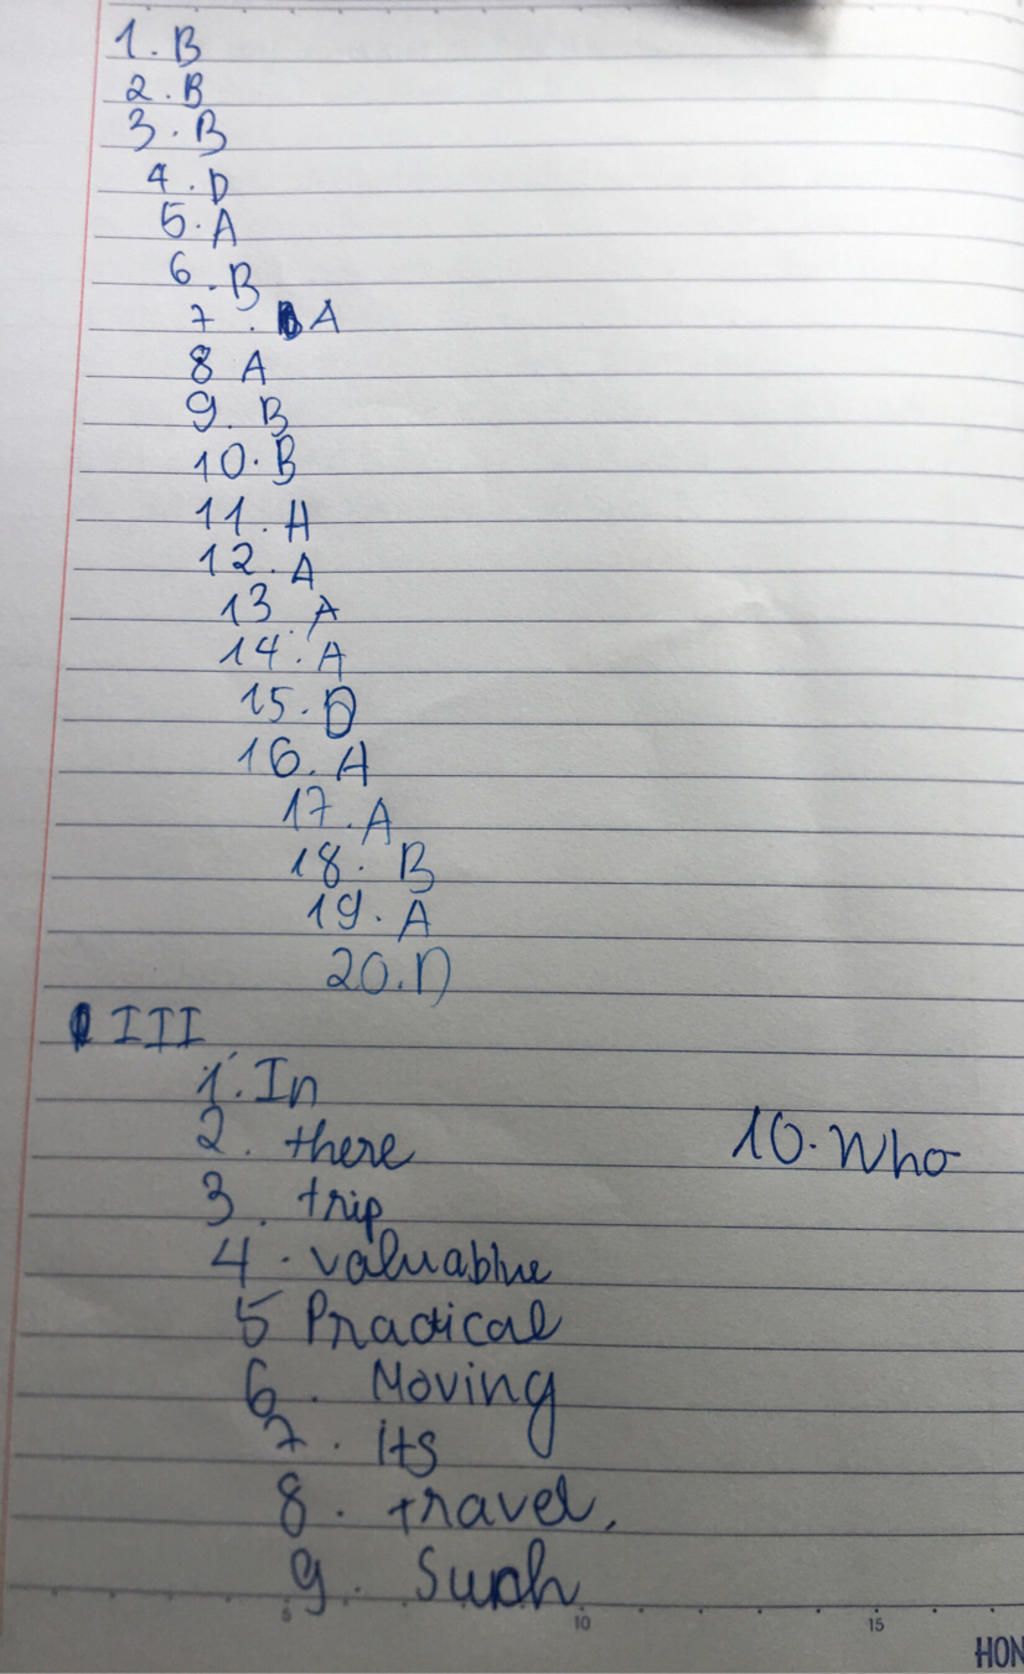 1. B
2. B
3. B
4. D
5. A
6. B
7. A
8 A
9. B
10. B
11. A
12. A
13. A
14. A
15. D
16. A
17. A
18. B
19. A
20. D
III
1. In
2. there
3. trip
4. valuablue
5 Practical
6. Moving
7. its
8. travel.
9. Such
10. Who
5 10 15
HON